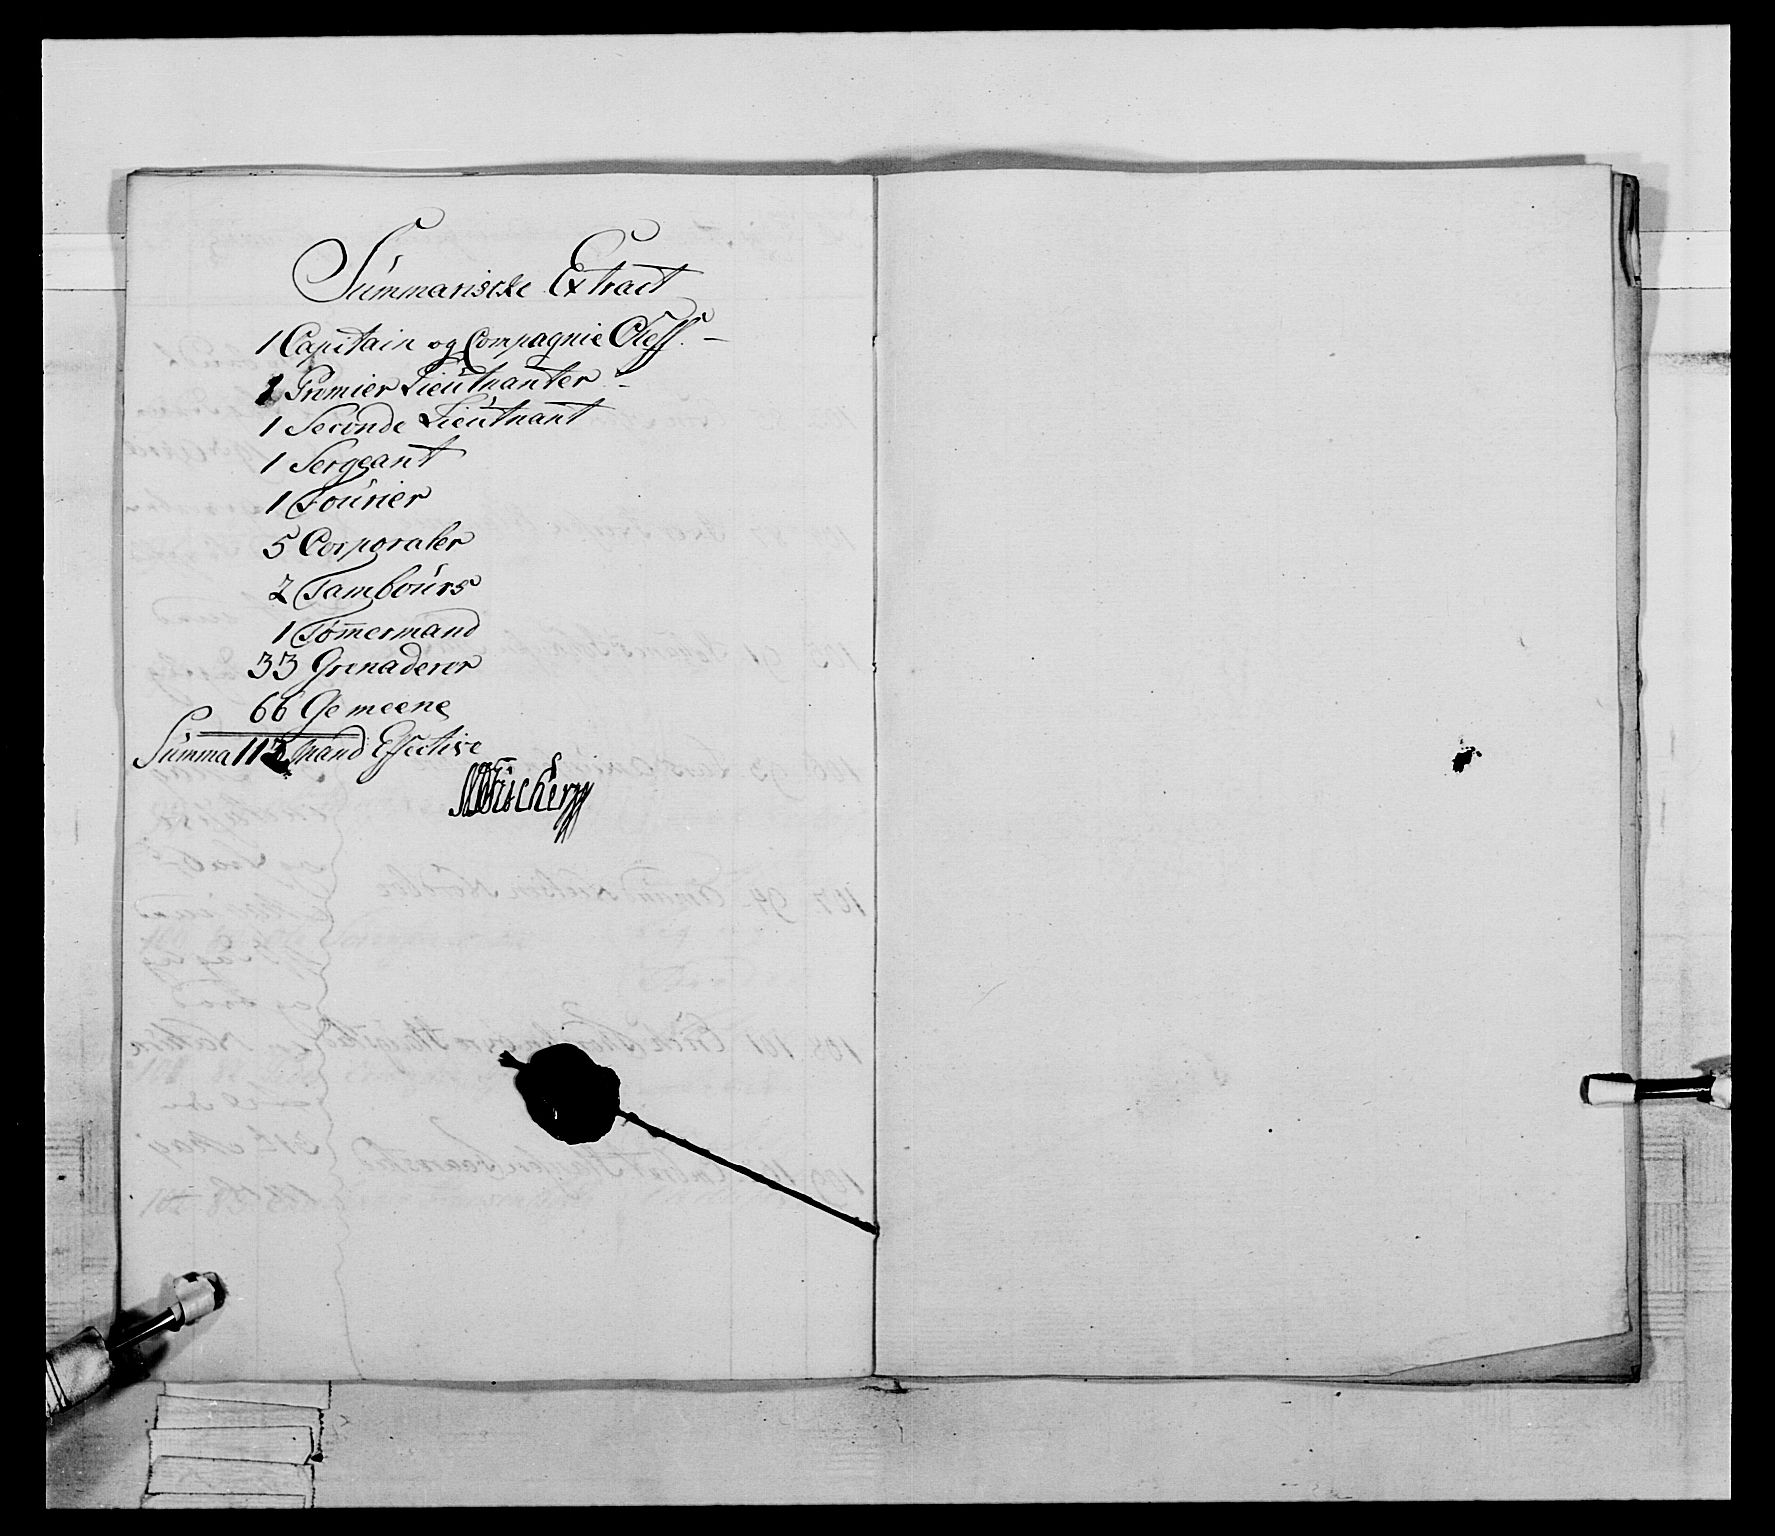 Summariske Extract
1 Capitain og Compagnie Cheff. –
2 Premier Lieutnanter –
1 Seconde Lieutnant
1 Sergeant
1 Fourier
5 Corporaler
2 Tambours
1 Tom̄ermand
33 Grenaderer
66 Gemeene
Summa 113 Mand Effective